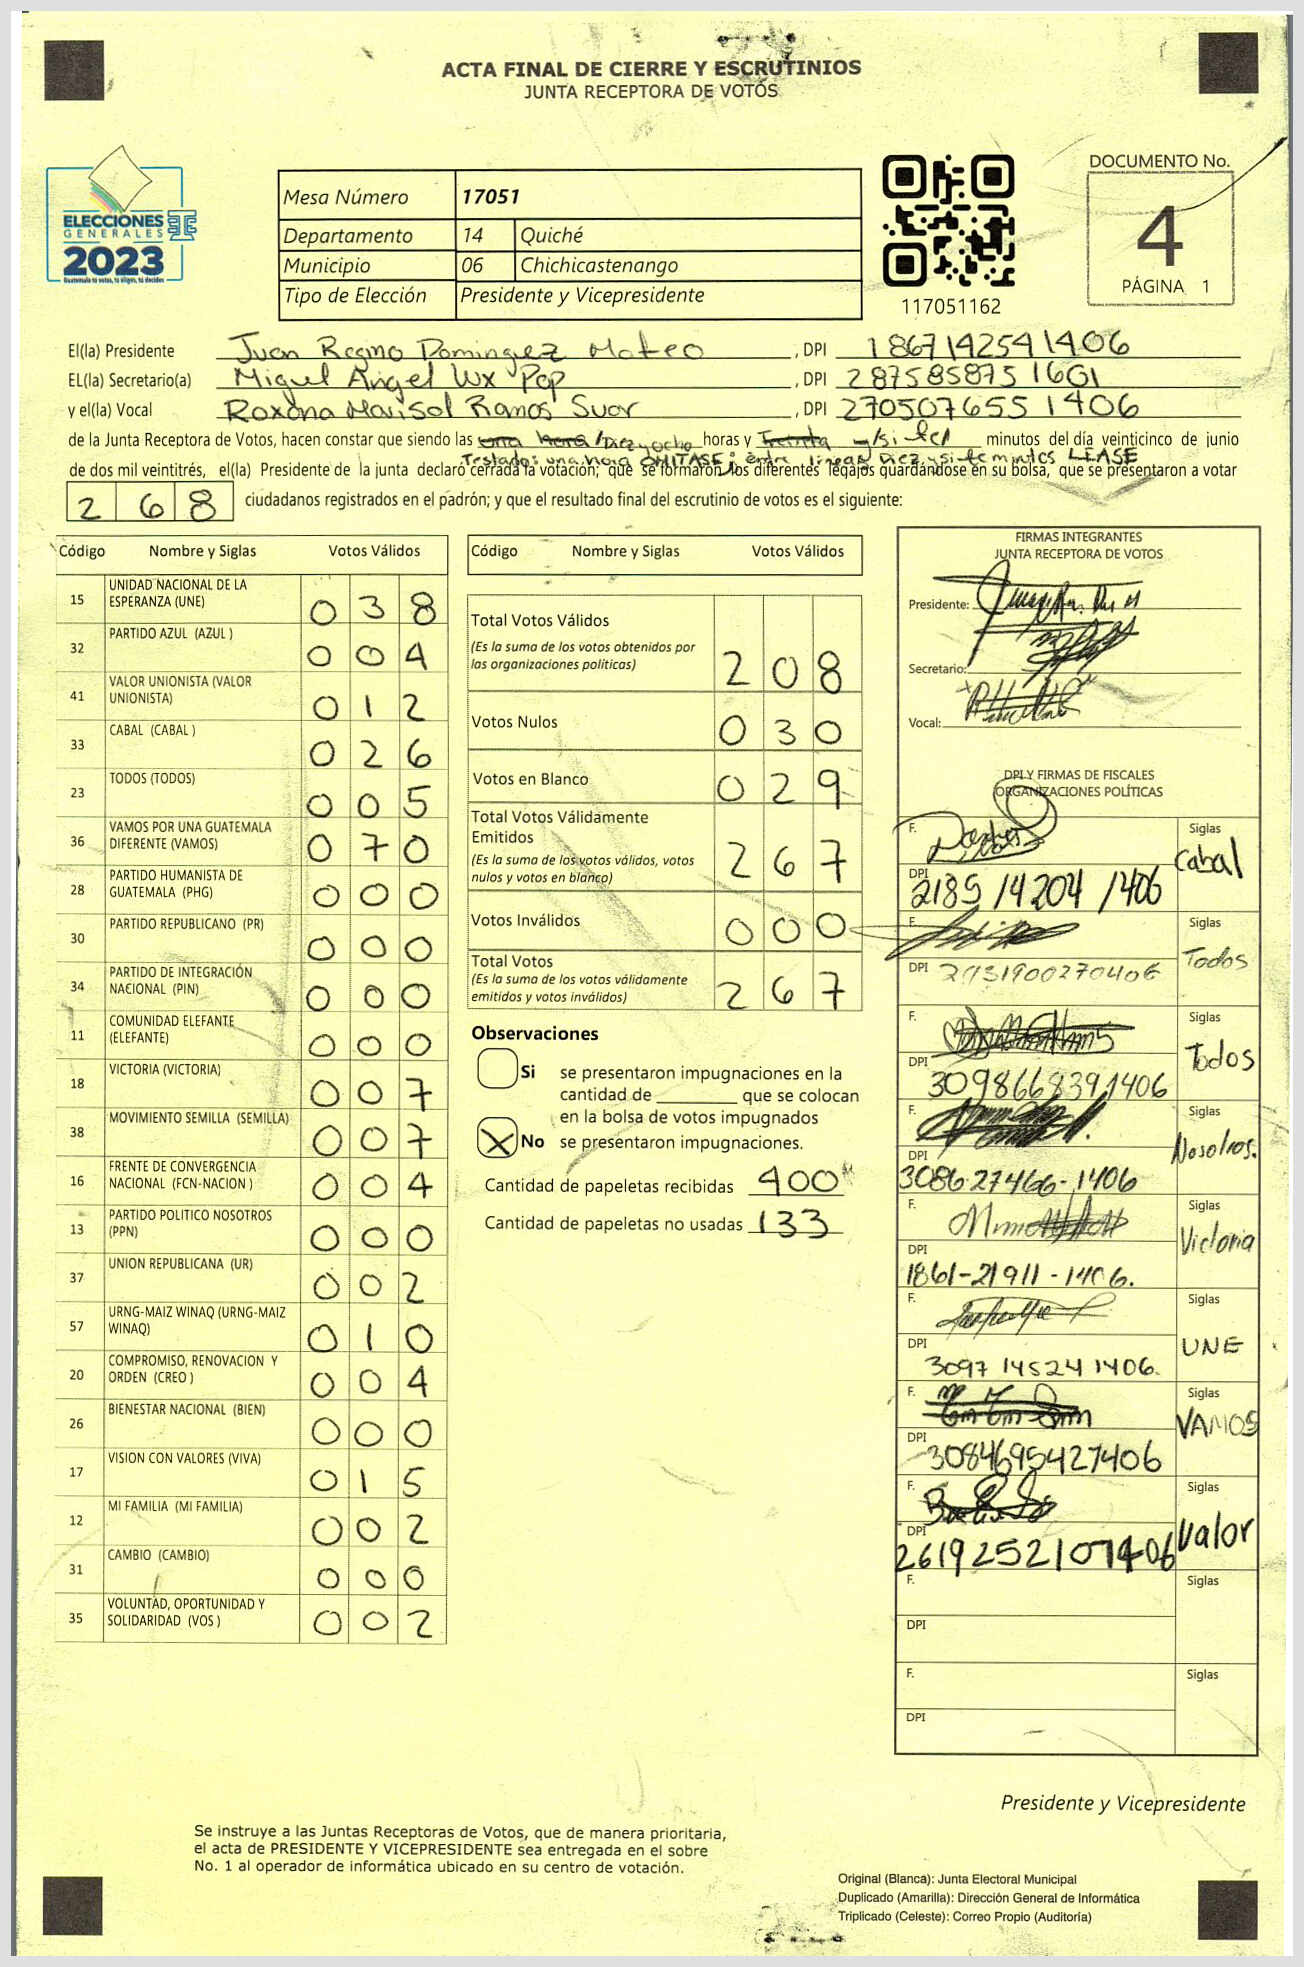 ACTA FINAL DE CIERRE Y ESCRUTINIOS
JUNTA RECEPTORA DE VOTOS
ELECCIONES
GENERALES
2023
Guatemala tu votas, tu eliges, tu decides
Mesa Número 17051
Departamento 14 Quiché
Municipio 06 Chichicastenango
Tipo de Elección Presidente y Vicepresidente
117051162
DOCUMENTO No.
4
PÁGINA 1
El(la) Presidente Juan Regino Dominguez Mateo , DPI 1867142541406
EL(la) Secretario(a) Miguel Angel Wx Pop , DPI 287585875 1601
y el(la) Vocal Roxana Marisol Ramos Suar , DPI 270507655 1406
de la Junta Receptora de Votos, hacen constar que siendo las una hora/Diez yocho horas y Treinta y/siete minutos del día veinticinco de junio
Testado: una hora OMITASE; entre lineas Diez y siete minutos LEASE
de dos mil veintitrés, el(la) Presidente de la junta declaró cerrada la votación; que se formaron los diferentes legajos guardándose en su bolsa, que se presentaron a votar
268 ciudadanos registrados en el padrón; y que el resultado final del escrutinio de votos es el siguiente:
Código Nombre y Siglas Votos Válidos
15 UNIDAD NACIONAL DE LA ESPERANZA (UNE) 038
32 PARTIDO AZUL (AZUL ) 004
41 VALOR UNIONISTA (VALOR UNIONISTA) 012
33 CABAL (CABAL ) 026
23 TODOS (TODOS) 005
36 VAMOS POR UNA GUATEMALA DIFERENTE (VAMOS) 070
28 PARTIDO HUMANISTA DE GUATEMALA (PHG) 000
30 PARTIDO REPUBLICANO (PR) 000
34 PARTIDO DE INTEGRACIÓN NACIONAL (PIN) 000
11 COMUNIDAD ELEFANTE (ELEFANTE) 000
18 VICTORIA (VICTORIA) 007
38 MOVIMIENTO SEMILLA (SEMILLA) 007
16 FRENTE DE CONVERGENCIA NACIONAL (FCN-NACION ) 004
13 PARTIDO POLITICO NOSOTROS (PPN) 000
37 UNION REPUBLICANA (UR) 002
57 URNG-MAIZ WINAQ (URNG-MAIZ WINAQ) 010
20 COMPROMISO, RENOVACION Y ORDEN (CREO ) 004
26 BIENESTAR NACIONAL (BIEN) 000
17 VISION CON VALORES (VIVA) 015
12 MI FAMILIA (MI FAMILIA) 002
31 CAMBIO (CAMBIO) 000
35 VOLUNTAD, OPORTUNIDAD Y SOLIDARIDAD (VOS ) 002
Código Nombre y Siglas Votos Válidos
Total Votos Válidos 208
(Es la suma de los votos obtenidos por
las organizaciones políticas)
Votos Nulos 030
Votos en Blanco 029
Total Votos Válidamente
Emitidos 267
(Es la suma de los votos válidos, votos
nulos y votos en blanco)
Votos Inválidos 000
Total Votos
(Es la suma de los votos válidamente
emitidos y votos inválidos) 267
Observaciones
Si se presentaron impugnaciones en la
cantidad de ________ que se colocan
en la bolsa de votos impugnados
X No se presentaron impugnaciones.
Cantidad de papeletas recibidas 400
Cantidad de papeletas no usadas 133
FIRMAS INTEGRANTES
JUNTA RECEPTORA DE VOTOS
Presidente:
Secretario:
Vocal:
DPI Y FIRMAS DE FISCALES
ORGANIZACIONES POLÍTICAS
F. Siglas Cabal
DPI 2185 14204 1406
F. Siglas Todos
DPI
F. Siglas Todos
DPI 3098668391406
F. Siglas Nosotros.
DPI 3086-27466-1406
F. Siglas Victoria
DPI 1861-21911-1406.
F. Siglas UNE
DPI 3097 14524 1406.
F. Siglas VAMOS
DPI 3084695427406
F. Siglas Valor
DPI 2619252101406
F. Siglas
DPI
F. Siglas
DPI
Presidente y Vicepresidente
Se instruye a las Juntas Receptoras de Votos, que de manera prioritaria,
el acta de PRESIDENTE Y VICEPRESIDENTE sea entregada en el sobre
No. 1 al operador de informática ubicado en su centro de votación.
Original (Blanca): Junta Electoral Municipal
Duplicado (Amarilla): Dirección General de Informática
Triplicado (Celeste): Correo Propio (Auditoría)